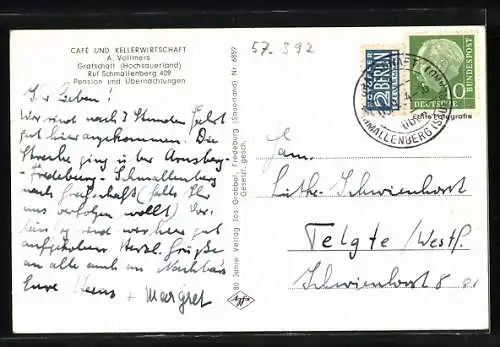 CAFÉ UND KELLERWIRTSCHAFT
A. Vollmers
Grafschaft (Hochsauerland)
Ruf Schmallenberg 409
Pension und Übernachtungen
57-592
Ihr Lieben!
Wir sind nach 3 Stunden Fahrt
gut hier angekommen. Die
Strecke ging über Arnsberg-
Fredeburg - Schmallenberg
nach Grafschaft (falls Ihr
uns verfolgen wollt)
sind wir hier gut
aufgehoben Herzl. Grüße
an alle auch an Nachbars
Eure Heinz + Margret
80 Jahre Verlag Jos. Grobbel, Fredeburg (Sauerland) Nr. 6859
Gesetzl. gesch.
Agfa
NOTOPFER
2 BERLIN
STEUERMARKE
10
DEUTSCHE
BUNDESPOST
SCHMALLENBERG (SAUERL)
Echte Fotografie
Fam.
Schwienhorst
Telgte / Westf.
Schwienhorst 8